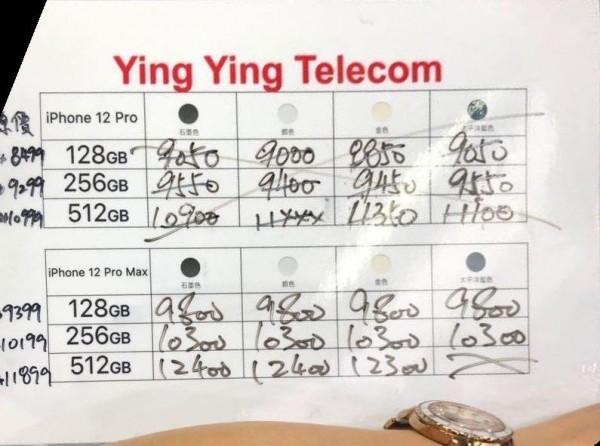 Ying Ying Telecom
原價 iPhone 12 Pro 石墨色 銀色 金色 太平洋藍色
8499 128GB 9050 9000 8850 9050
9299 256GB 9550 9400 9450 9550
10999 512GB 10900 11350 11100
iPhone 12 Pro Max 石墨色 銀色 金色 太平洋藍色
9399 128GB 9800 9800 9800 9800
10199 256GB 10300 10300 10300 10300
11899 512GB 12400 12400 12300